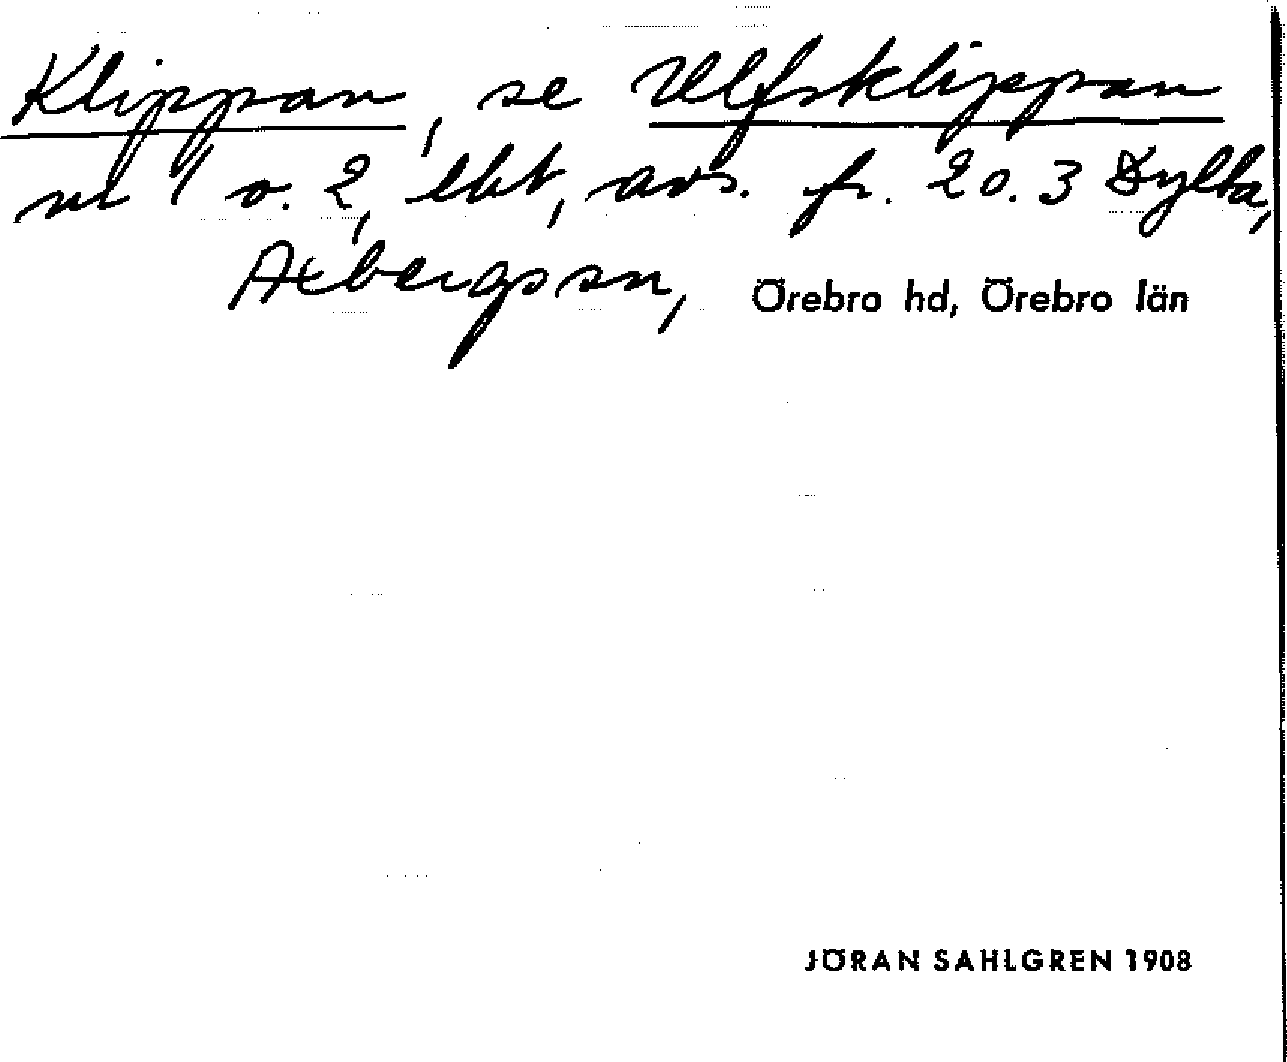 Klippan, se Ulfsklippan
nr 1 o. 2, lht, avs. fr. 20.3 Dylta,
Axbergs sn, Örebro hd, Örebro län
JÖRAN SAHLGREN 1908